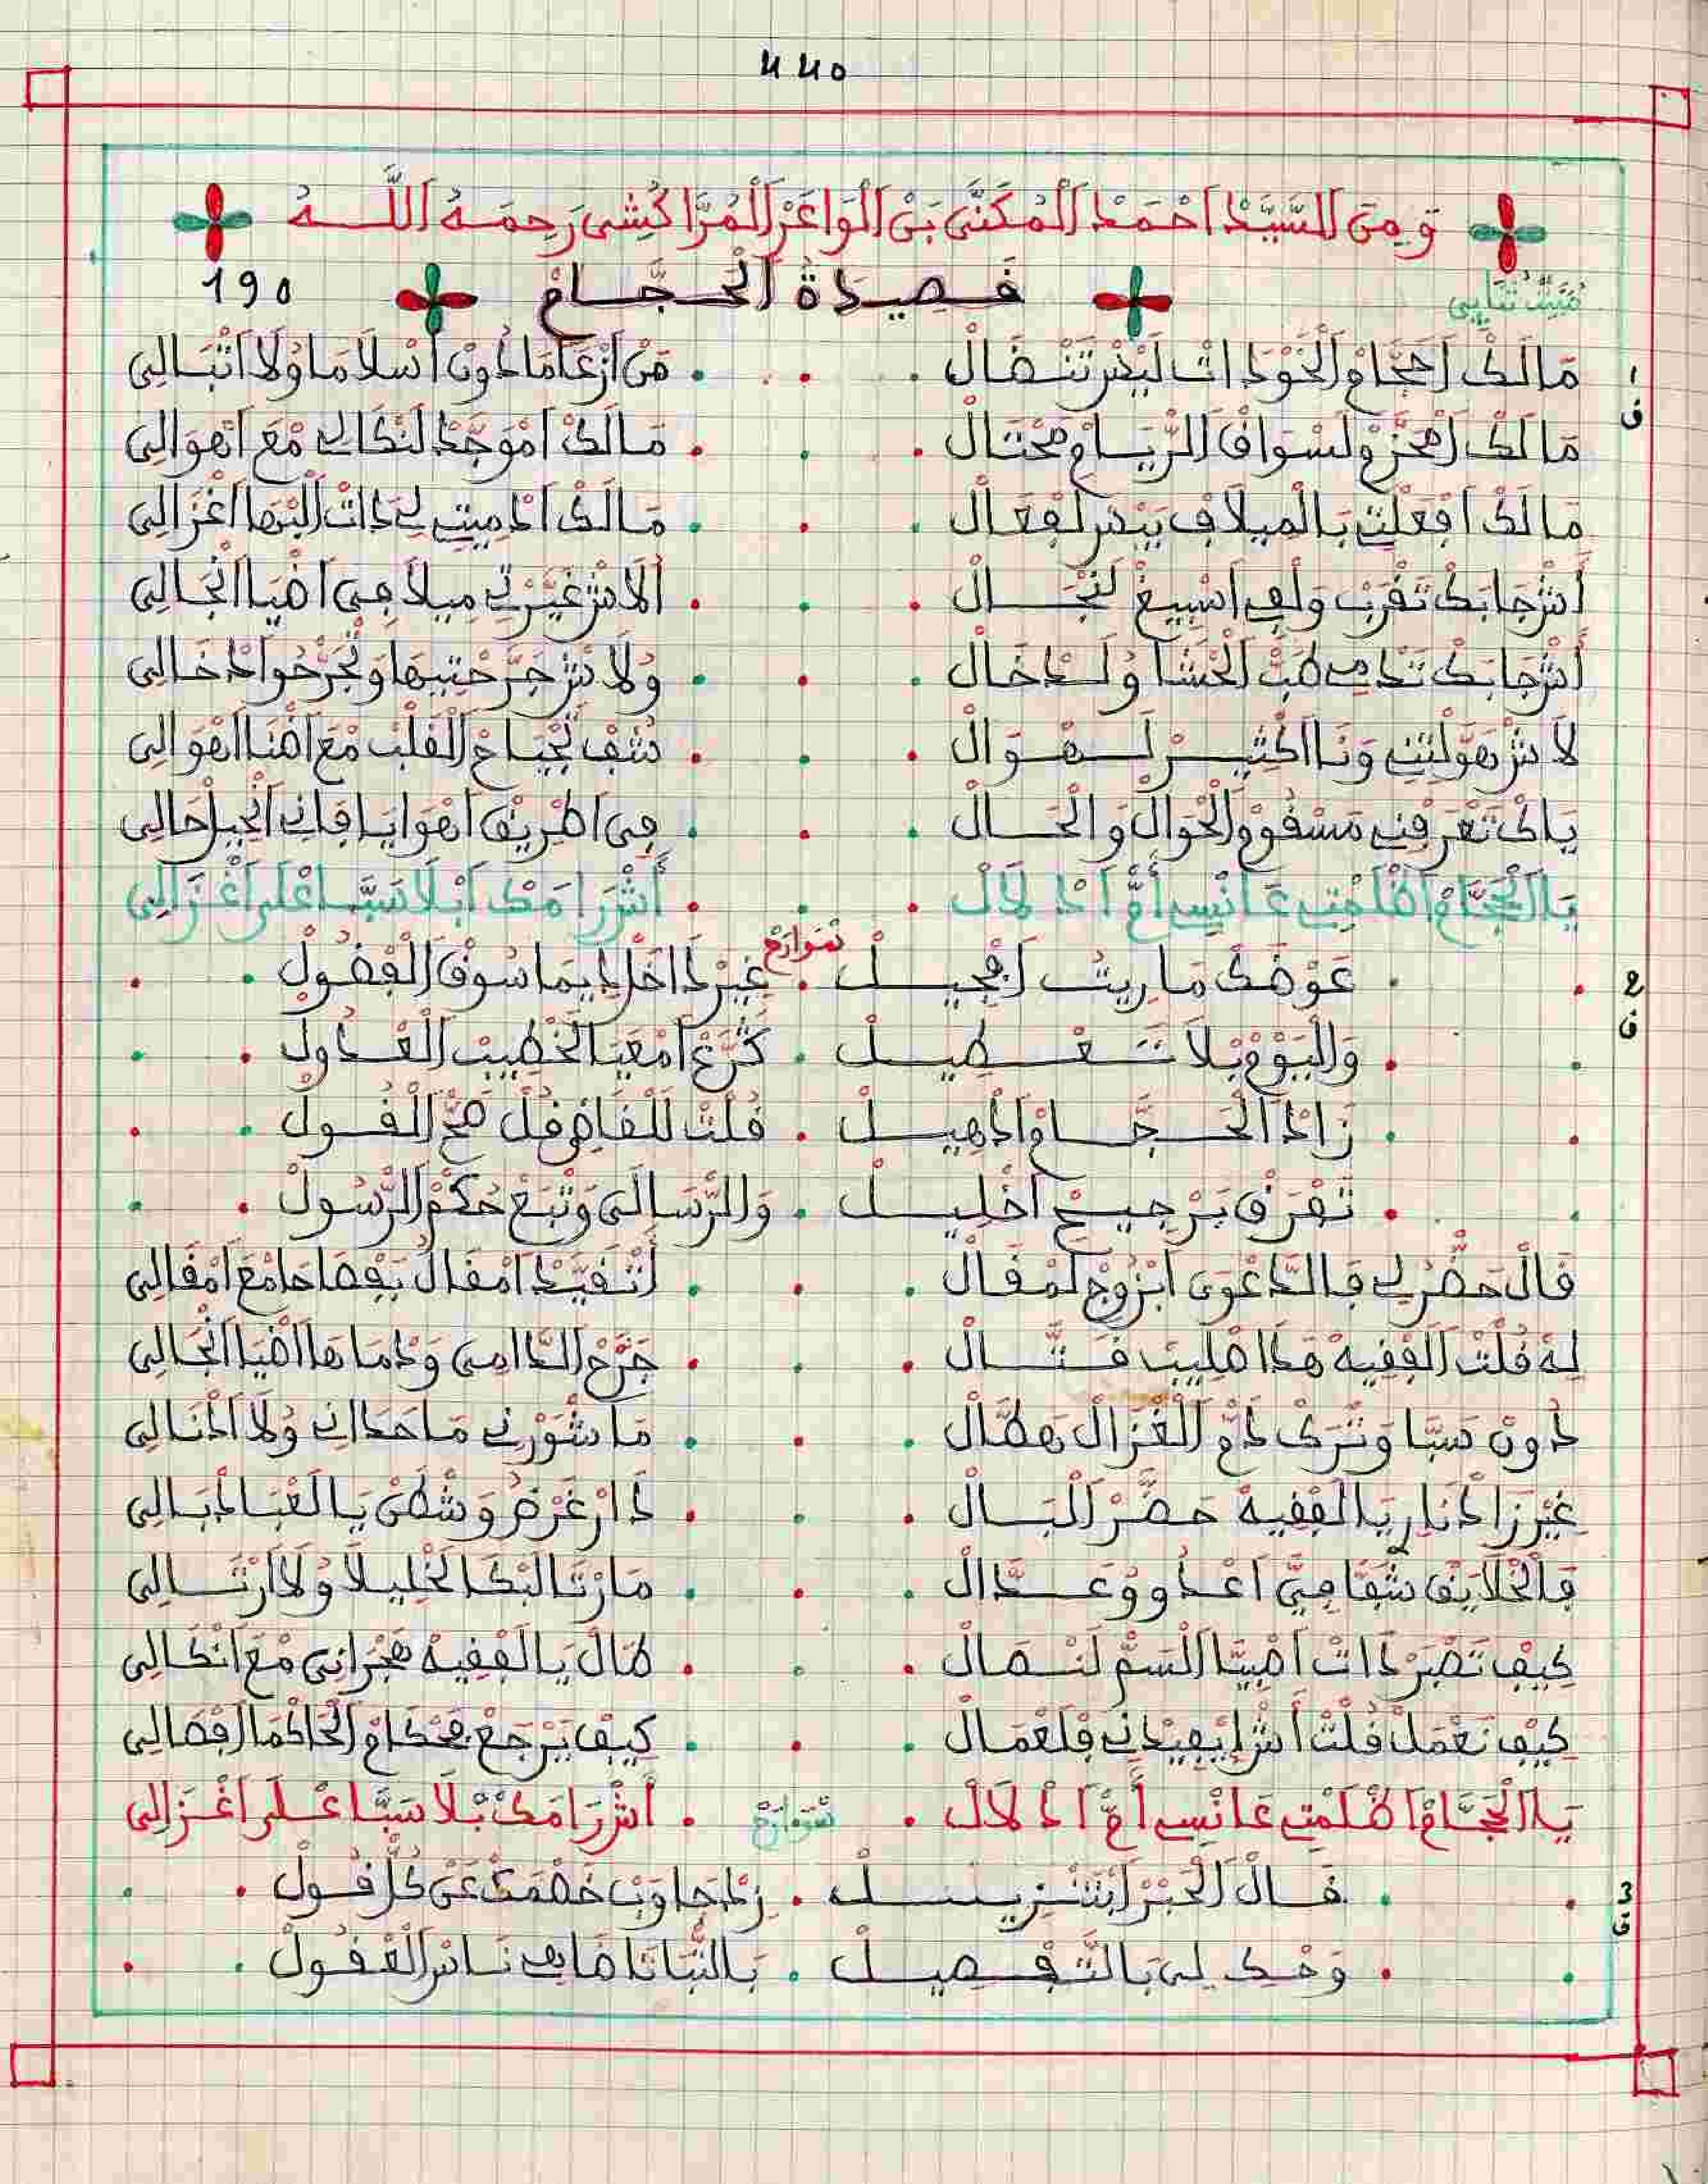 440
وَمِنَ السَّيِّدْ اَحْمَدْ الْمُكَنَّى بَنْ الْوَاعَرْ الْمُرَّاكُشِى رَحِمَهُ اَللَّـهُ
190 قَصِيدَةُ الْحَجَّامْ
مْبَيَّتْ ثْنَايِى
1 ق
مَالَكْ اَحَجَّامْ الْخَوْدَاتْ لَيْدَرْ تَنْصَالْ . . . مَنْ اَزْعَامَا دُونْ اَسْلَامَا وُلَا اَتْبَالِى
مَالَكْ لَسْوَاقْ الرّْيَامْ مَحْتَالْ . . . مَالَكْ اَمْوَجَّدْ لَنْكَالِى مْعَ اَهْوَالِى
مَالَكْ اَفْعَلْتِ بَالْمِيلَافْ بِيدَرْ لَفْعَالْ . . . مَالَكْ اَدْمِيتِ لِى دَاتْ الْبْهَا اَغْزَالِى
أَشْ جَابَكْ تَقْرَبْ وَلْفِى اَسْبِيغْ لَنْجَالْ . . . اَلَاشْ غَيَّرْتِ مِيلَافِى اَضْيَا اَنْجَالِى
أَشْ جَابَكْ تَدْمِى طَبّْ الْحْشَا وُلَدْخَالْ . . . وُلَاشْ جَرَّحْتِيهَا وَتْجَرْحُوا دْخَالِى
لَاشْ هَوَّلْتِنِى وَنَا اَكْثِيرْ لَهْوَالْ . . . شْفْ تَجْيَاحْ الْقَلْبْ مْعَ اَضْنَا اَهْوَالِى
يَاكْ تَعْرَفْنِى مَسْقُومْ الْحْوَالْ وَالْحَالْ . . . فِى اَطْرِيقْ اَهْوَايَا فَانِى اَنْحِيلْ حَالِى
يَا الْحَجَّامْ اَظْلَمْتِ عَانْسِى أُمّْ اَدْلَالْ . . . أَشْ رَامَكْ اَبْلَا سَبَّا عْلَى اَغْزَالِى
2 ق
شوارع
عَوْضَكْ مَا رِيتْ . غِيرْ دَاخَلْ دِيمَا سُوقْ الْفْضُولْ
وَالْيَوْمْ بْلَا تَعْطِيلْ . كَنْشَرَّعْ اَمْعَيَا الْخْطِيبْ الْعْدُولْ
زَادْ الْحَجَّامْ اَدْهِيلْ . قُلْتْ لَلْقَاضِى قُلْ صَحّْ الْقُولْ
تَعْرَفْ بَرْجِيحْ اَخْلِيلْ . وَالرّْسَالَى وَتْبَعْ حُكْمْ الرّْسُولْ
قَالْ حَضَّرْ لِى فَالدَّعْوَى اَبْزُوجْ لَمْقَالْ . . . أَنْتْقَيَّدْ اَمْقَالُ بَفْصَاحَا مْعَ اَمْقَالِى
لِهْ قُلْتْ الْفْقِيهْ هَدَا طْلِيبْ قَتَّالْ . . . جَرَّحْ الدَّامِى وَدْمَاهَا اَضْيَا اَنْجَالِى
دُونْ سَبَّا وَتْرَكْ دَمّْ الْغْزَالْ هَطَّالْ . . . مَا شَوَّرْنِى مَا حَدَانِى وُلَا اَدْنَالِى
غِيرْ زَادْنَا رْ يَا الْفْقِيهْ حَضَّرْ الْبَالْ . . . دَارْ غَرْضُ وَشْطَنْ يَا لَعْبَادْ بَالِى
فَالْخْلَايَقْ شَفَّا فِيَّ اَعْدُو وُعَدَّالْ . . . مَارْتَا لَبْكَا لَخْلِيلَا وُلَا اَرْتَالِى
كِيفْ تَصْبَرْ دَاتْ اَصْبِيَّا السَمّْ لَنْصَالْ . . . طَالْ يَا لَفْقِيهْ هَجْرَانِى مْعَ اَنْكَالِى
كِيفْ نَعْمَلْ قُلْتْ أَشْ اِيفِيدْنِى فَلَعْمَالْ . . . كِيفْ يَرْجَعْ بَحْكَامْ الْحَاكْمَا اَفْصَالِى
يَا الْحَجَّامْ اَظْلَمْتِ عَانْسِى أُمّْ اَدْلَالْ . شوارع . أَشْ رَامَكْ بْلَا سَبَّا عْلَى اَغْزَالِى
3 ق
قَالْ الْحَبْرْ اَبْتَنْزِيلْ . زِدْ جَاوَبْ خَصْمَكْ عَنْ كُلّْ قُولْ
وَحْكِ لِى بَالتَّفْصِيلْ . بَالثّْبَاتَا نَاسْ الْعْقُولْ